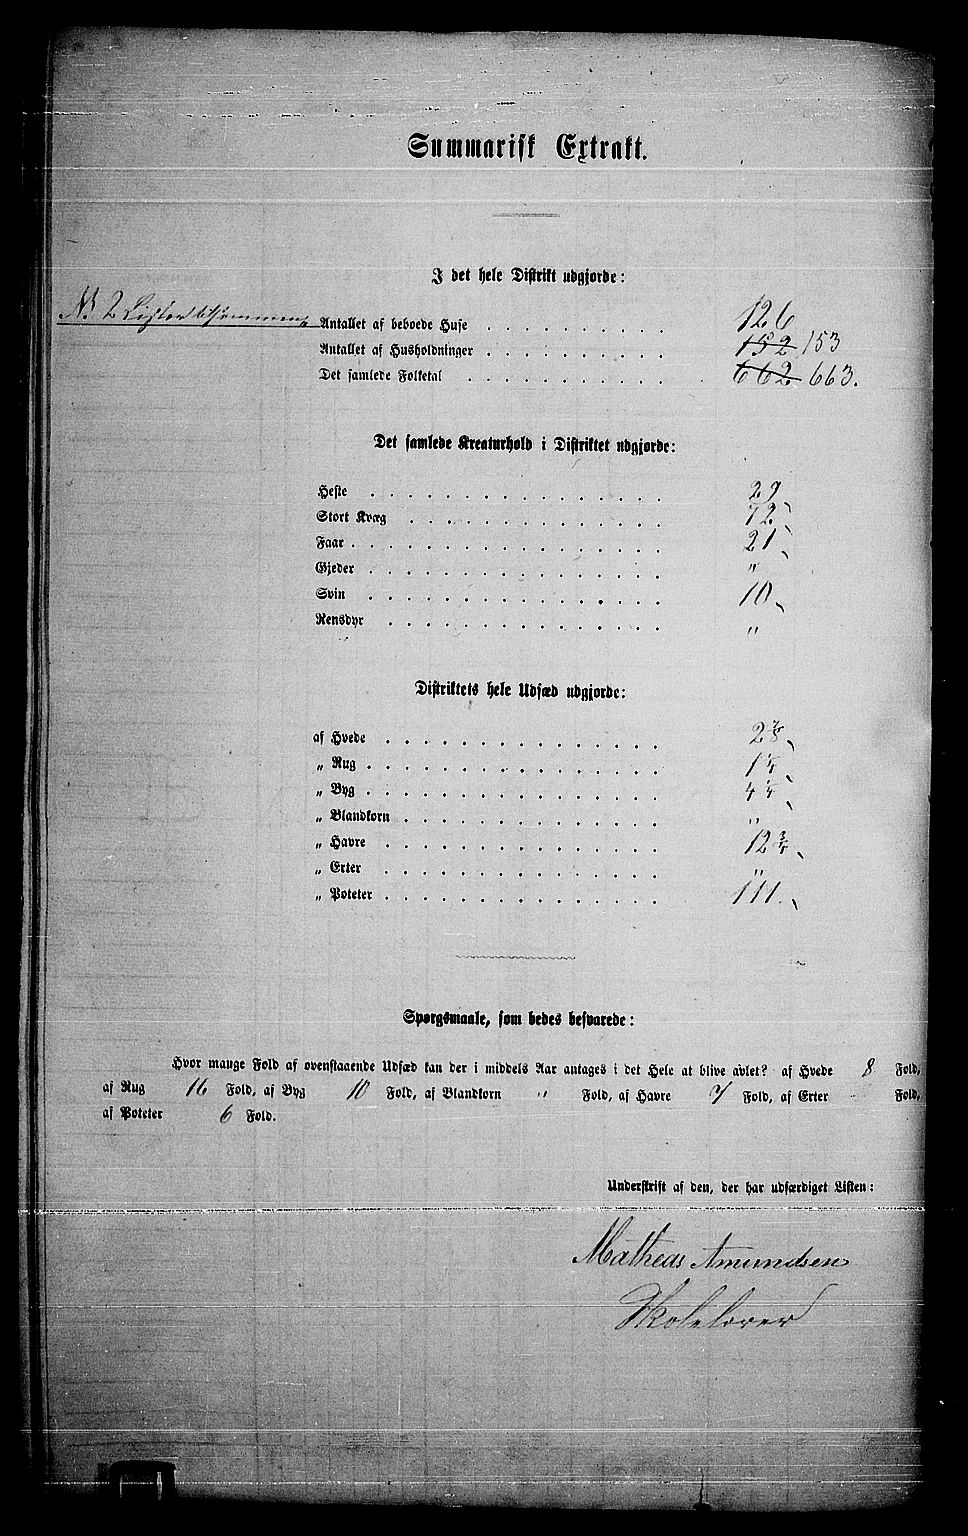 Summarisk Extrakt.
I det hele Distrikt udgjorde:
N: 2
Antallet af beboede Huse 126
Antallet af Husholdninger 152 153
Det samlede Folketal 662 663.
Det samlede Kreaturhold i Distriktet udgjorde:
Heste 29
Stort Kvæg 72
Faar 21
Gjeder "
Svin 10
Rensdyr "
Distriktets hele Udsæd udgjorde:
af Hvede 2 7/8
„ Rug 1 1/4
„ Byg 4 1/4
„ Blandkorn "
„ Havre 12 3/4
„ Erter "
„ Poteter
Spørgsmaale, som bedes besvarede:
Hvor mange Fold af ovenstaaende Udsæd kan der i middels Aar antages i det Hele at blive avlet? af Hvede 8 Fold,
af Rug 16 Fold, af Byg 10 Fold, af Blandkorn " Fold, af Havre 7 Fold, af Erter Fold,
af Poteter 6 Fold.
Underskrift af den, der har udfærdiget Listen:
Matheas Amundsen
Skolelærer